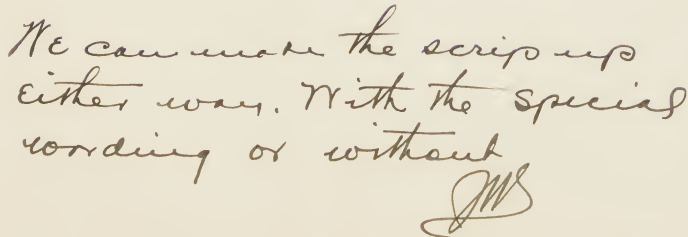 We can make the scrip up
either way. With the special
wording or without
JMS